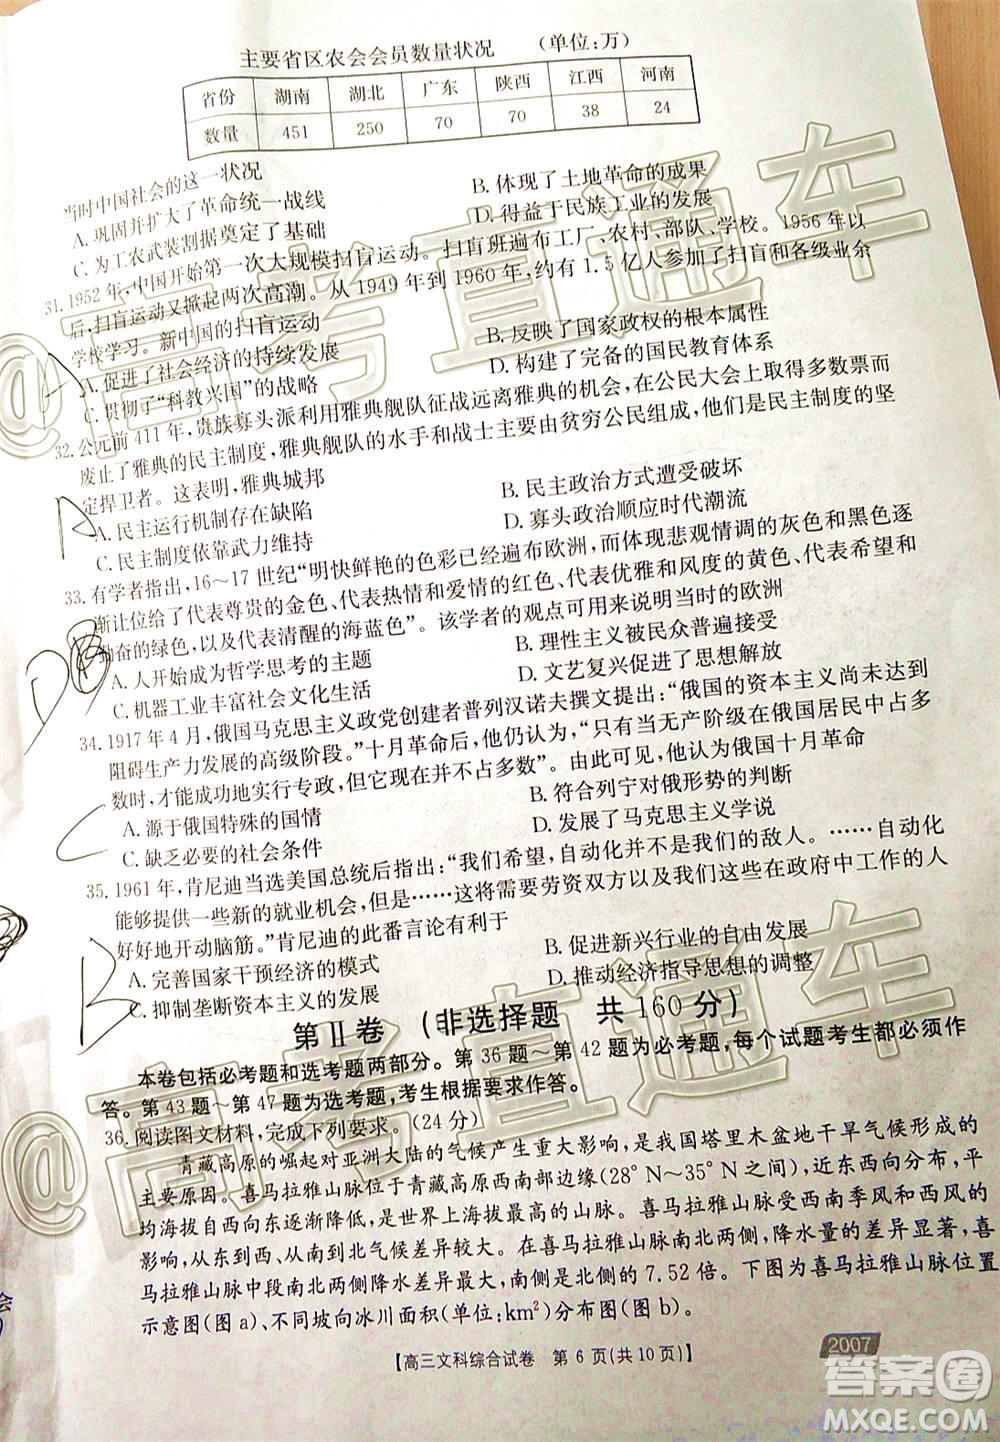 主要省区农会会员数量状况 (单位:万)
省份 湖南 湖北 广东 陕西 江西 河南
数量 451 250 70 70 38 24
当时中国社会的这一状况
A. 巩固并扩大了革命统一战线 B. 体现了土地革命的成果
C. 为工农武装割据奠定了基础 D. 得益于民族工业的发展
31. 1952 年,中国开始第一次大规模扫盲运动。扫盲班遍布工厂、农村、部队、学校。1956 年以
后,扫盲运动又掀起两次高潮。从 1949 年到 1960 年,约有 1.5 亿人参加了扫盲和各级业余
学校学习。新中国的扫盲运动
A. 促进了社会经济的持续发展 B. 反映了国家政权的根本属性
C. 贯彻了“科教兴国”的战略 D. 构建了完备的国民教育体系
32. 公元前 411 年,贵族寡头派利用雅典舰队征战远离雅典的机会,在公民大会上以多数票而
废止了雅典的民主制度,雅典舰队的水手和战士主要由贫穷公民组成,成为民主制度的坚
定捍卫者。这表明,雅典城邦
A. 民主运行机制存在缺陷 B. 民主政治方式遭受破坏
C. 民主制度依靠武力维持 D. 寡头政治顺应时代潮流
33. 有学者指出,16~17 世纪“明快鲜艳的色彩已经遍布欧洲,而体现悲观情调的灰色和黑色逐
渐让位给了代表尊贵的金色、代表热情和爱情的红色、代表优越感的黄色、代表希望和
勤奋的绿色,以及代表清醒的海蓝色”。该学者的观点可用于说明当时的欧洲
A. 人开始成为哲学思考的主题 B. 理性主义被民众普遍接受
C. 机器工业丰富社会文化生活 D. 文艺复兴促进了思想解放
34. 1917 年 4 月,俄国马克思主义政党创建者普列汉诺夫撰文提出:“俄国的资本主义尚未达到
阻碍生产力发展的高级阶段。”十月革命后,他仍认为:“只有当无产阶级在俄国居民中占多
数时,才能成功地实行专政,但它现在并不占多数”。据此,他认为俄国十月革命
A. 源于俄国特殊的国情 B. 符合列宁对俄形势的判断
C. 缺乏必要的社会条件 D. 发展了马克思主义学说
35. 1961 年,肯尼迪当选美国总统后指出:“我们希望,自动化并不是我们的敌人。……自动化
能够提供一些新的就业机会,但是……这将需要劳资双方以及那些在政府中工作的人
好好地开动脑筋。”肯尼迪的此番言论有利于
A. 完善国家干预经济的模式 B. 促进新兴行业的自由发展
C. 抑制垄断资本主义的发展 D. 推动经济指导思想的调整
第Ⅱ卷 (非选择题 共 160 分)
本卷包括必考题和选考题两部分。第 36 题~第 42 题为必考题,每个试题考生都必须作
答。第 43 题~第 47 题为选考题,考生根据要求作答。
36. 阅读图文材料,完成下列要求。(24 分)
青藏高原的崛起对亚洲大陆的气候产生重大影响,是我国塔里木盆地干旱气候形成的
主要原因。喜马拉雅山脉位于青藏高原西南部(28°N~35°N),近东西向分布,平
均海拔自西向东逐渐降低,是世界上海拔最高的山脉。喜马拉雅山脉受西南季风和西风的
影响,从东到西、从南到北气候差异较大。在喜马拉雅山脉南北两侧,降水量的差异显著,喜
马拉雅山脉中段南北两侧降水差异最大,南侧是北侧的 7.52 倍。下图为喜马拉雅山脉位置
示意图(图 a)、不同坡向冰川面积(单位:km²)分布图(图 b)。
【高三文科综合试卷 第 6 页(共 10 页)】
2007
@高考直通车
@高考直通车
答案圈
MXQE.COM
A
A
D
C
B